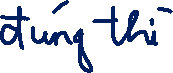 đúng thì